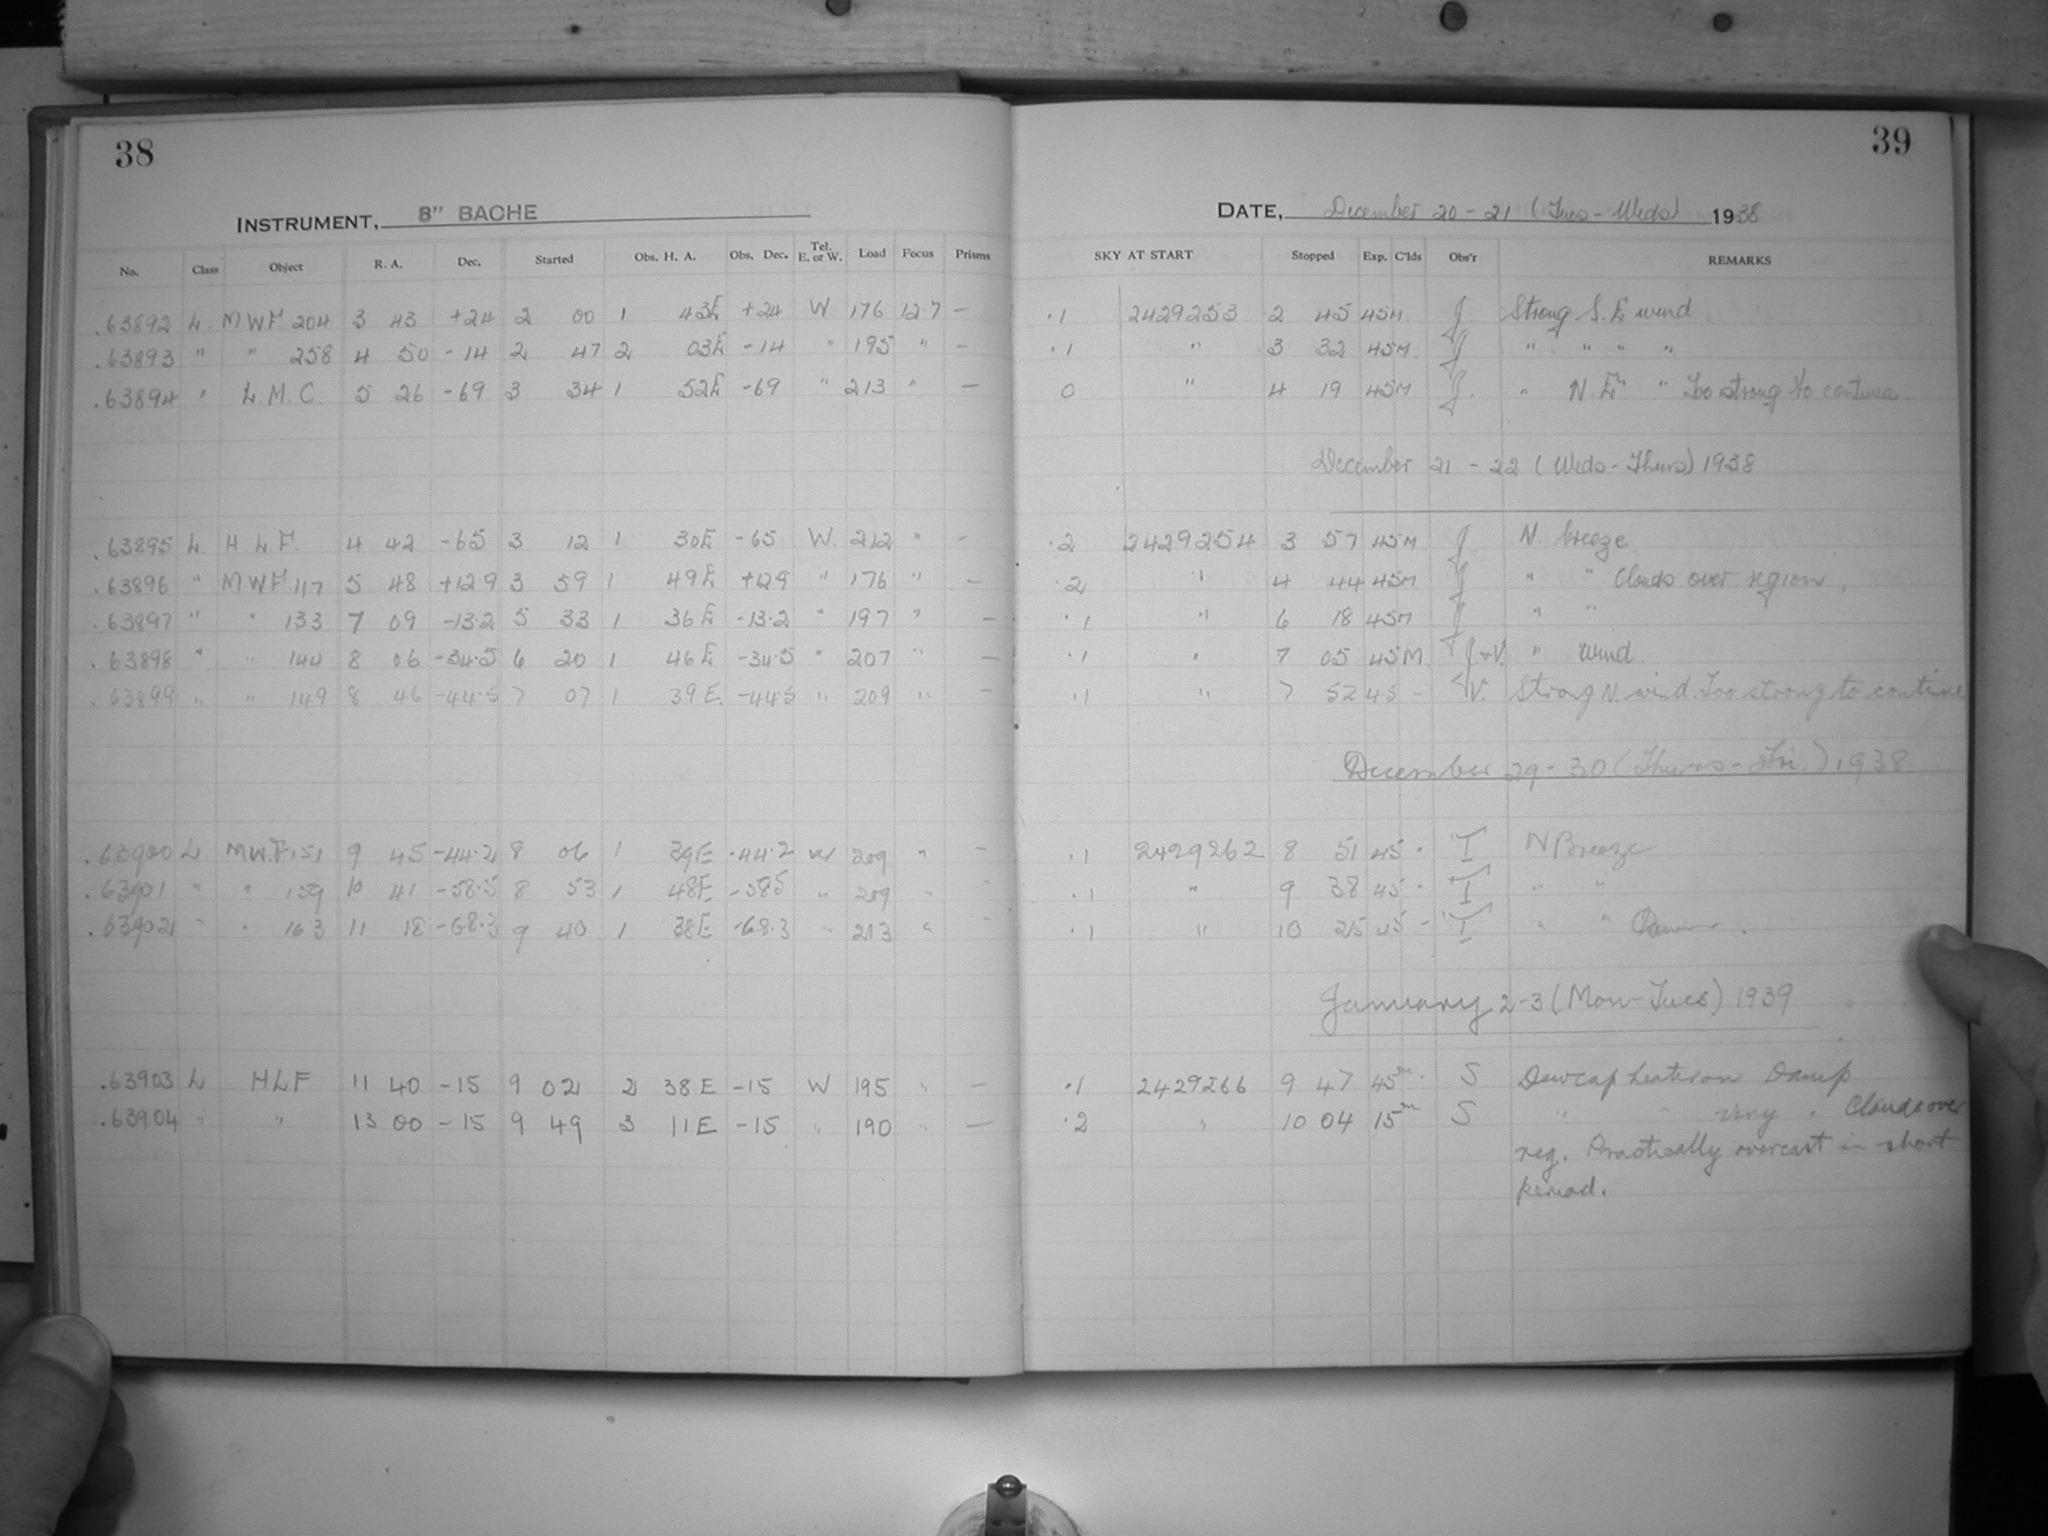 38
INSTRUMENT, 8" BACHE
No. Class Object R. A. Dec. Started Obs. H. A. Obs. Dec. Tel. E. or W. Load Focus Prisms
.63892 L. MWF 204 3 43 +24 2 00 1 43E +24 W 176 12.7 -
.63893 " " 258 4 50 -14 2 47 2 03E -14 " 195 " -
.63894 " L.M.C. 5 26 -69 3 34 1 52E -69 " 213 " -
.63895 L H L F. 4 42 -65 3 12 1 30E -65 W. 212 " -
.63896 " MWF 117 5 48 +12.9 3 59 1 49E +12.9 " 176 " -
.63897 " " 133 7 09 -13.2 5 33 1 36E -13.2 " 197 " -
.63898 " " 144 8 06 -34.5 6 20 1 46E -34.5 " 207 " -
.63899 " " 149 8 46 -44.5 7 07 1 39E. -44.5 " 209 " -
.63900 L MW.F.151 9 45 -44.2 8 06 1 39E -44.2 W 209 " -
.63901 " " 159 10 41 -58.5 8 53 1 48E -58.5 " 209 " -
.63902 " " 163 11 18 -68.3 9 40 1 38E -68.3 " 213 " -
.63903 L HLF 11 40 -15 9 02 2 38E -15 W 195 " -
.63904 " " 13 00 -15 9 49 3 11E -15 " 190 " -
39
DATE, December 20-21 (Tues-Weds) 1938
SKY AT START Stopped Exp. C'lds Obs'r REMARKS
.1 2429253 2 45 45M. J. Strong S.E wind
.1 " 3 32 45M. J " " " "
0 " 4 19 45M J. " N E " " Too strong to continue.
December 21-22 (Weds-Thurs) 1938
.2 2429254 3 57 45M J N. breeze
.2 " 4 44 45M J " " Clouds over region.
.1 " 6 18 45M J " "
.1 " 7 05 45M. J+V. " wind
.1 " 7 52 45 - V. Strong N. wind. Too strong to continue
December 29-30 (Thurs-Fri.) 1938
.1 2429262 8 51 45 - T N Breeze
.1 " 9 38 45 - T " "
.1 " 10 25 45 - T " "
January 2-3 (Mon-Tues) 1939
.1 2429266 9 47 45m. S Dewcap heater on Damp
.2 " 10 04 15m S " " very " Clouds over
reg. Practically overcast in short
period.